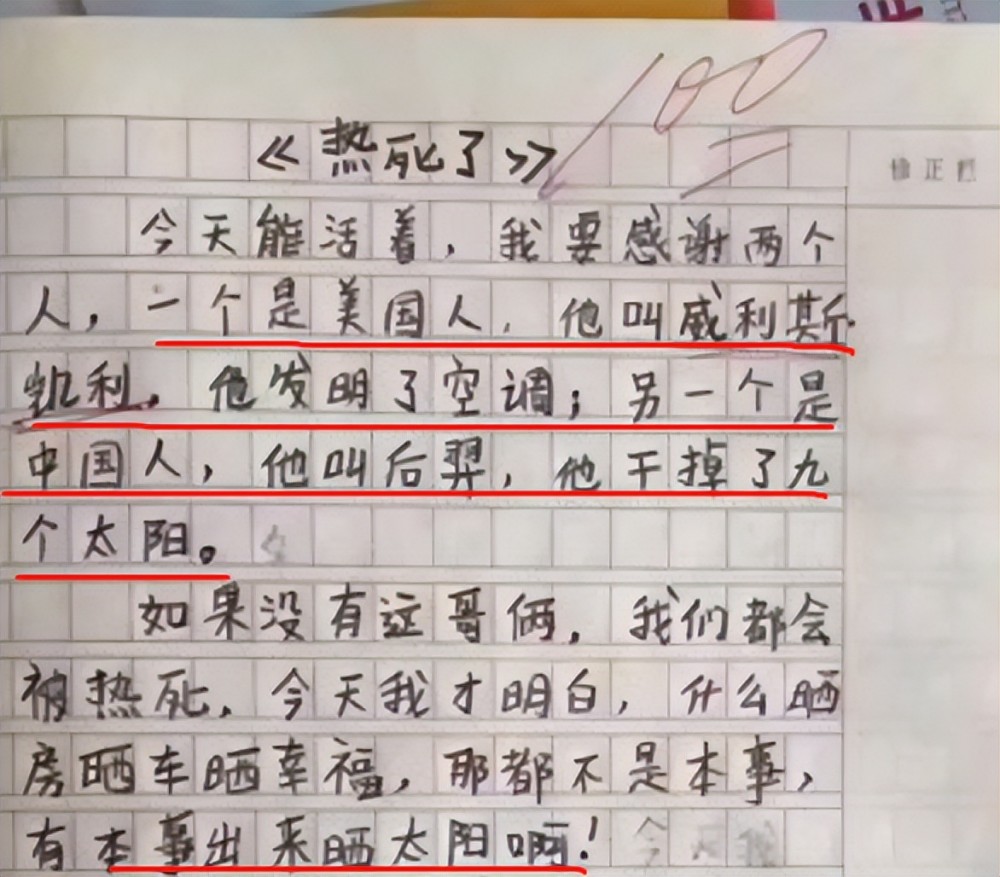 100
《热死了》
今天能活着，我要感谢两个
人，一个是美国人，他叫威利斯
凯利，他发明了空调；另一个是
中国人，他叫后羿，他干掉了九
个太阳。
如果没有这哥俩，我们都会
被热死，今天我才明白，什么晒
房晒车晒幸福，那都不是本事，
有本事出来晒太阳啊！